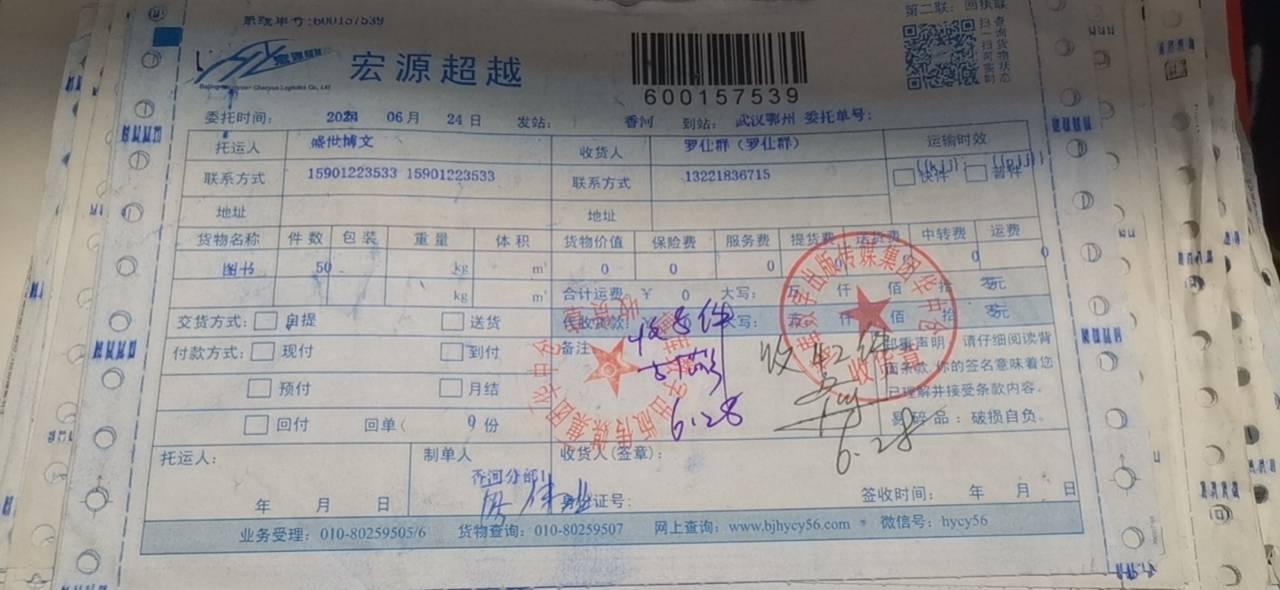 系统单号:600157539
第二联：回执联
扫一扫可实时查询货物状态
宏源超越
600157539
委托时间： 06月 24日 发站： 香河 到站： 武汉鄂州 委托单号：
托运人 盛世博文 收货人 罗仕群（罗仕群） 运输时效
联系方式 15901223533 15901223533 联系方式 13221836715 快件 普件
地址 地址
货物名称 件数 包装 重量 体积 货物价值 保险费 服务费 提货费 送货费 中转费 运费
图书 50 kg m³ 0 0 0 0 0 0
kg m³ 合计运费：¥ 0 大写： 万 仟 佰 拾 零元
交货方式： 自提 送货 代收货款： 大写： 仟 佰 拾 零元
付款方式： 现付 到付 备注 郑重声明：请仔细阅读背
面条款，你的签名意味着您
预付 月结 已理解并接受条款内容。
回付 回单( 0 份 易碎品：破损自负。
6.28
收
6.28
数字出版传媒集团华中仓
收货章
托运人： 制单人 收货人(签章)：
香河分部1
年 月 日 身份证号： 签收时间： 年 月 日
业务受理：010-80259505/6 货物查询：010-80259507 网上查询：www.bjhycy56.com 微信号：hycy56